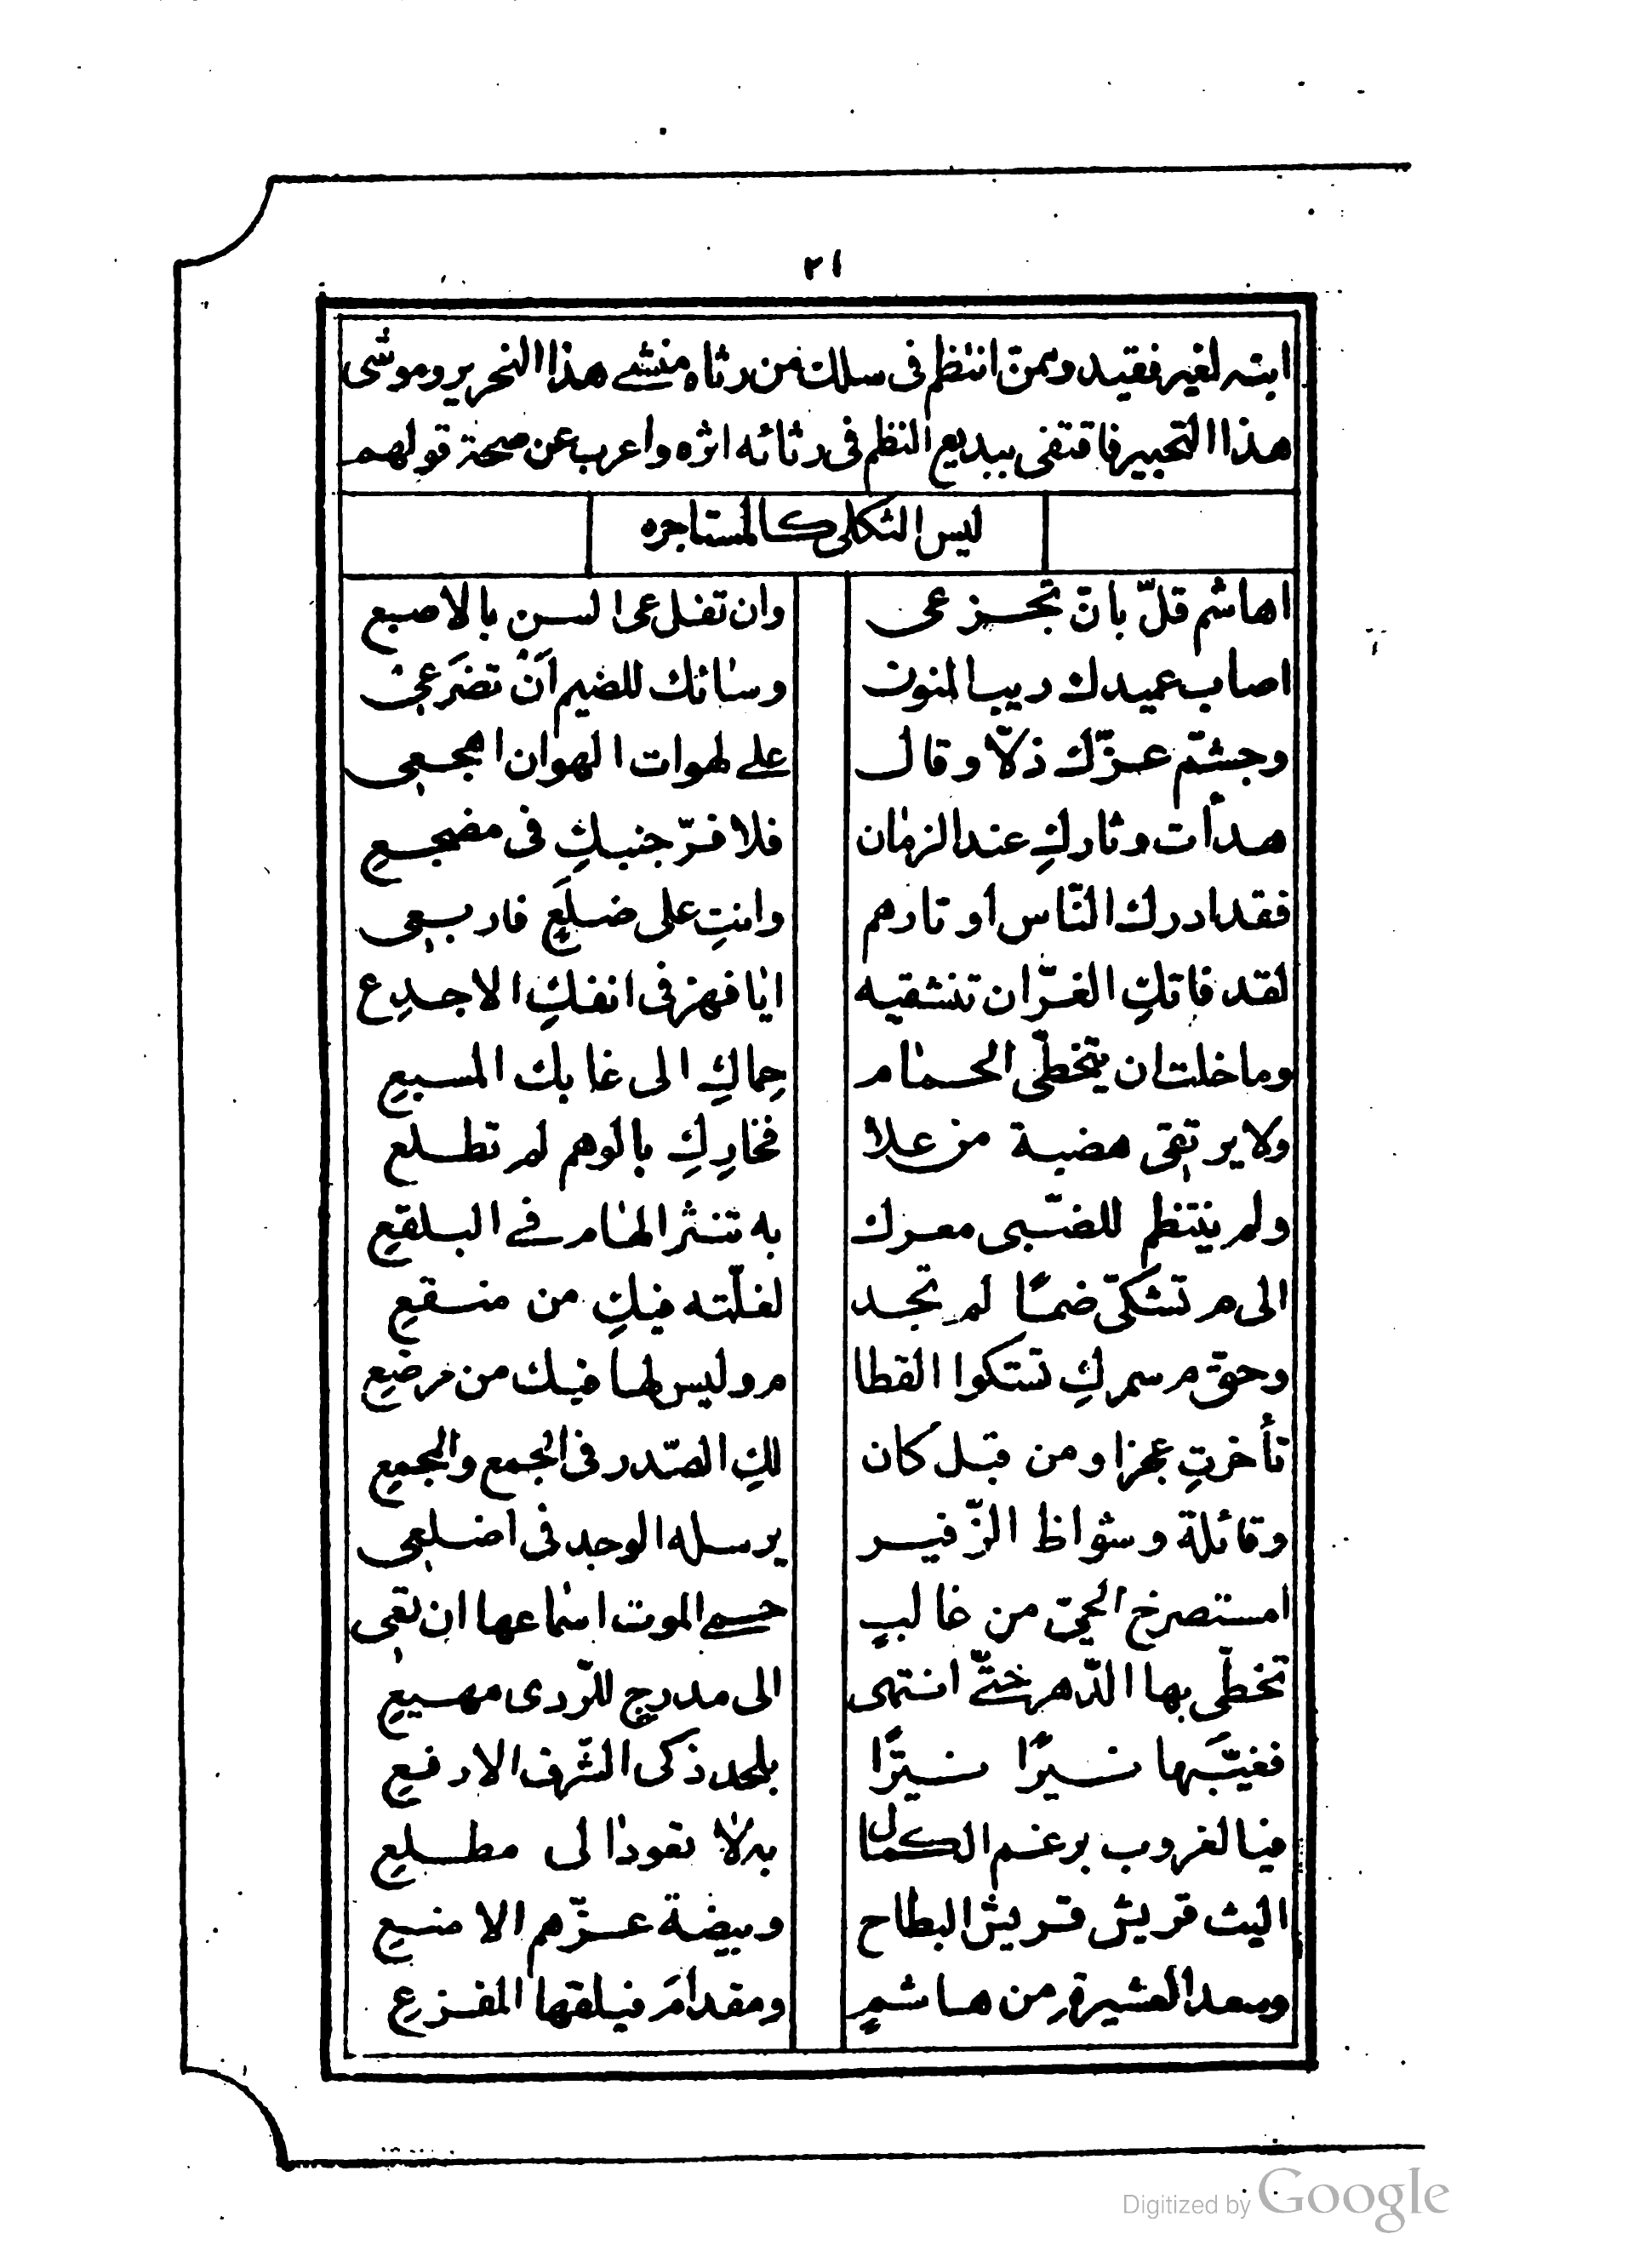 ٢١
ابنه لغير فقيد وممن انتظم فى سلك من رثاه منشے هذا التحرير وموشى
هذا التحبير فاقتفى ببديع النظم فى رثائه اثره واعرب عن صحة قولهم
ليس الثكلى كالمستاجره
اهاشم قلّ بان تجزعى وان تفلعى السن بالاصبع
اصاب عميدك ريب المنون وسائك للضيم اَنْ تضرَعىْ
وجشّم عزّك ذلّا وقال علے لهوات الهوان اهجعى
هدأت وثاركِ عند الزمان فلا قرّ جنبكِ فى مضجعِ
فقد ادرك النّاس اوتارهم وانتِ على ضلَعٍ فاربعى
لقد فاتكِ الغرّ ان تنشقيه ايا فهز فى انفكِ الاجدِع
وما خلت ان يتخطّى الحمام حِماكِ الى غابك المسبعِ
ولا يرتقى هضبة من علا فخارِكِ بالوهم لم تطلع
ولم ينتظم للضّبى معرك به تنثر الهام فے البلقعِ
الى م تشكّى ضمًا لم تجد لغلّته فيكِ من منقعِ
وحقّ م سمركِ تشتكوا القطا م وليس لها فيك من مرضعِ
تأخرتِ عجزا ومن قبل كان لكِ الصّدر فى الجمع والمجمعِ
وقائلة وشواظ الزّفير يرسله الوجد فى اضلعى
امستصرخ الحىّ من غالبٍ حسے الموت اسماعها ان تعى
تخطّى بها الدّهر حتّے انتهى الى مدرجٍ للرّدى مهيعِ
فغيّبها نيرًا نيّرًا بلحد ذكى الشّرف الارفعِ
فيا لغروب برغم الكمال بدلا نعود الى مطلعِ
اليث قريش قريش البطاح وبيضة عزّهم الامنعِ
وسعد العشيرة من هاشمٍ ومقدامَ فيلقها المفزعِ
Digitized by Google